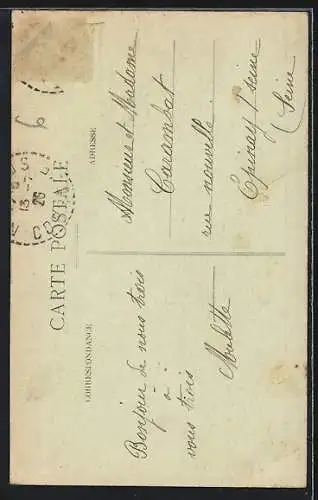 CARTE POSTALE
CORRESPONDANCE
ADRESSE
Bonjour de nous trois
à
vous trois
Monsieur et Madame
Carambat
rue nouvelle
Epinay / seine
(Seine
13 - 5
26
6